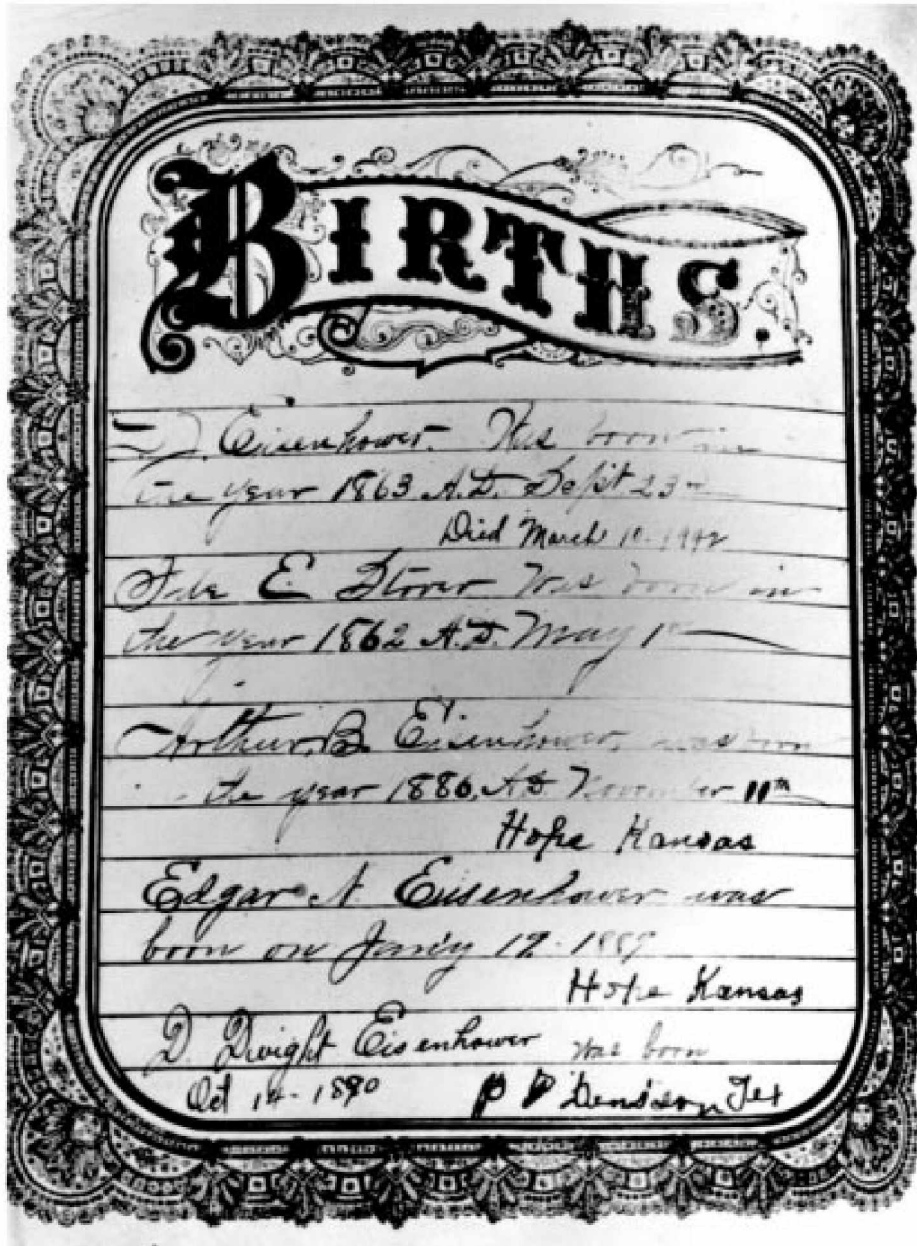 BIRTHS.
D. J. Eisenhower. Was born in
the year 1863 A.D. Sept 23rd
Died March 10 - 1942
Ida E. Stover Was born in
the year 1862 A.D. May 1st
Arthur, B. Eisenhower, was born
the year 1886, A.D. November 11th
Hope Kansas
Edgar N. Eisenhower was
born on Jan'y 19 - 1889
Hope Kansas
D. Dwight Eisenhower was born
Oct 14 - 1890 Denison, Tex